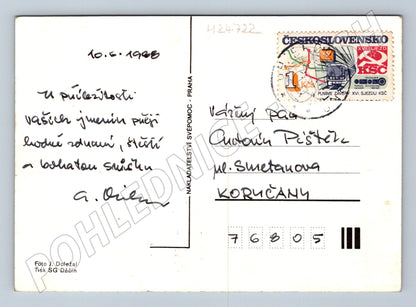 424722
10.6.1988
ČESKOSLOVENSKO
XVII. SJEZD
KSČ
1
PLNÍME ZÁVĚRY XVII. SJEZDU KSČ
U příležitosti
Vašich jmenin přeji
hodně zdraví, štěstí
a bohatou snůšku
NAKLADATELSTVÍ SVĚPOMOC - PRAHA
Vážený pan
Antonín Pištěk
ul. Smetanova
KORYČANY
76805
Foto J. Doležal
Tisk SG Děčín
POHLEDNICE